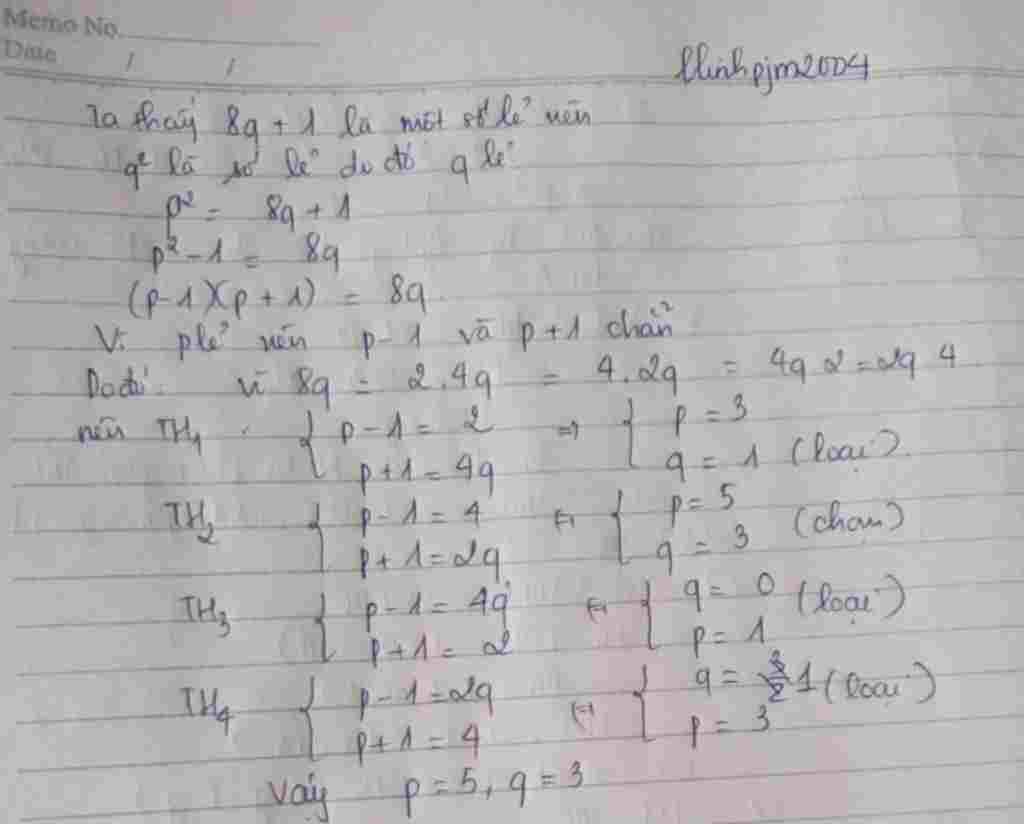 Memo No.
Date / /
Minhpjm2004
Ta thấy 8q + 1 là một số lẻ nên
q² là số lẻ do đó q lẻ
p² = 8q + 1
p² - 1 = 8q
(p-1)(p+1) = 8q
Vì p lẻ nên p-1 và p+1 chẵn
Do đó vì 8q = 2.4q = 4.2q = 4q 2 = 2q 4
nên TH1 { p - 1 = 2 => { p = 3
p+1 = 4q q = 1 (loại).
TH2 { p - 1 = 4 <=> { p = 5
p + 1 = 2q q = 3 (chọn)
TH3 { p - 1 = 4q <=> { q = 0 (loại)
p+1 = 2 p = 1
TH4 { p - 1 = 2q <=> { q = 1 (loại)
p+1 = 4 p = 3
Vậy p = 5, q = 3